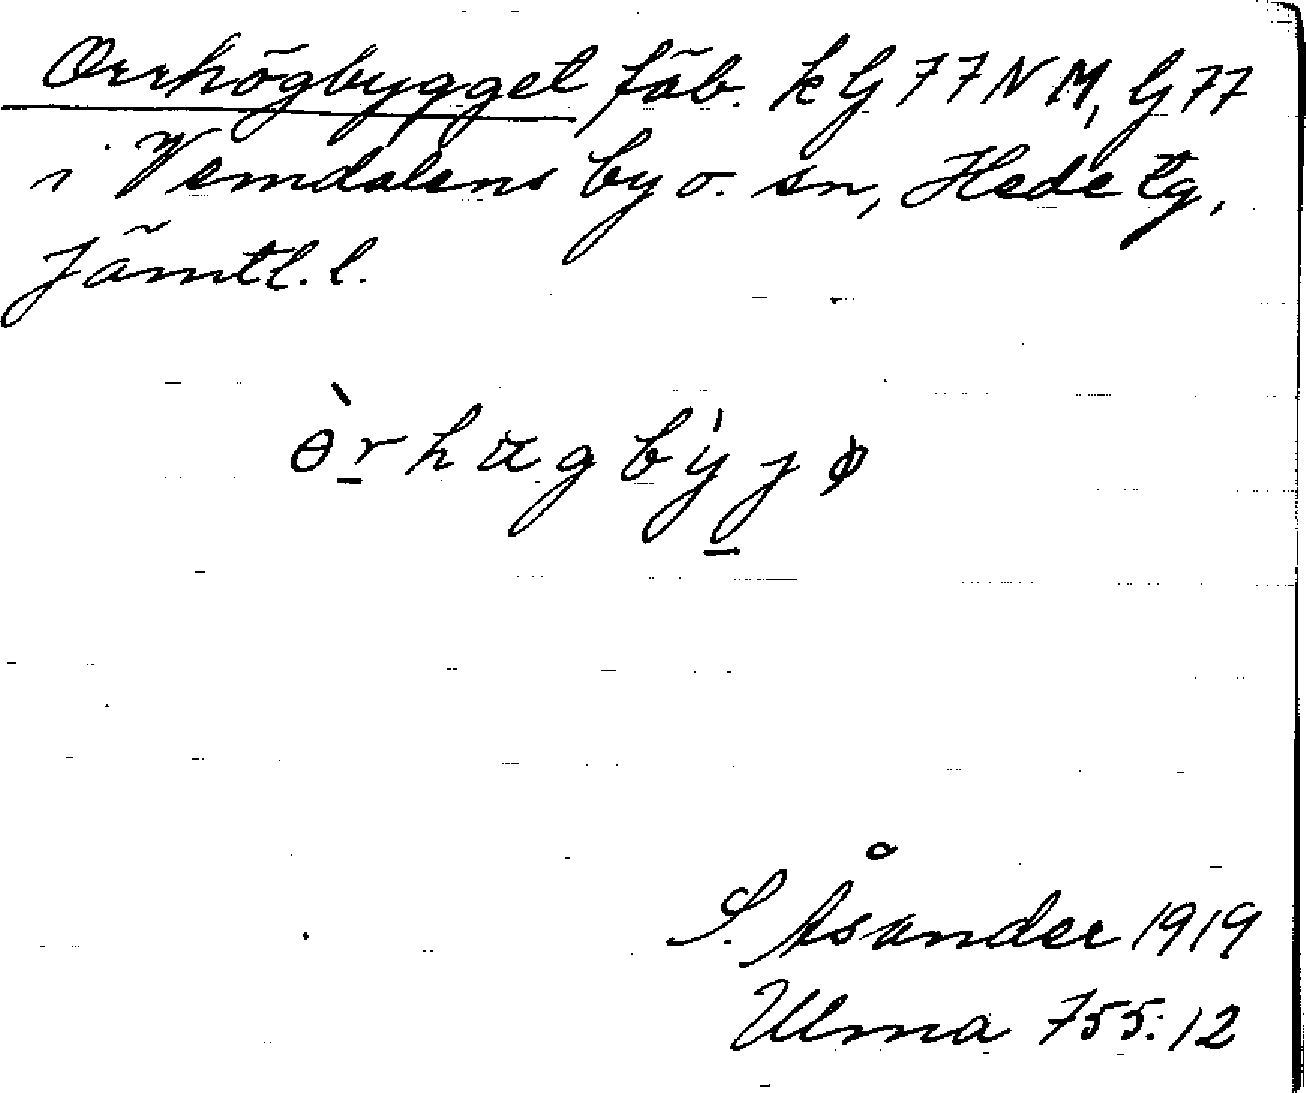 Orrhögbygget fäb. k G 77 N M, G 77
i Vemdalens by o. sn, Hede tg,
Jämtl. l.
ɵ̀r̠hαgbý̠jꬾ
S. Åsander 1919
Ulma 755:12